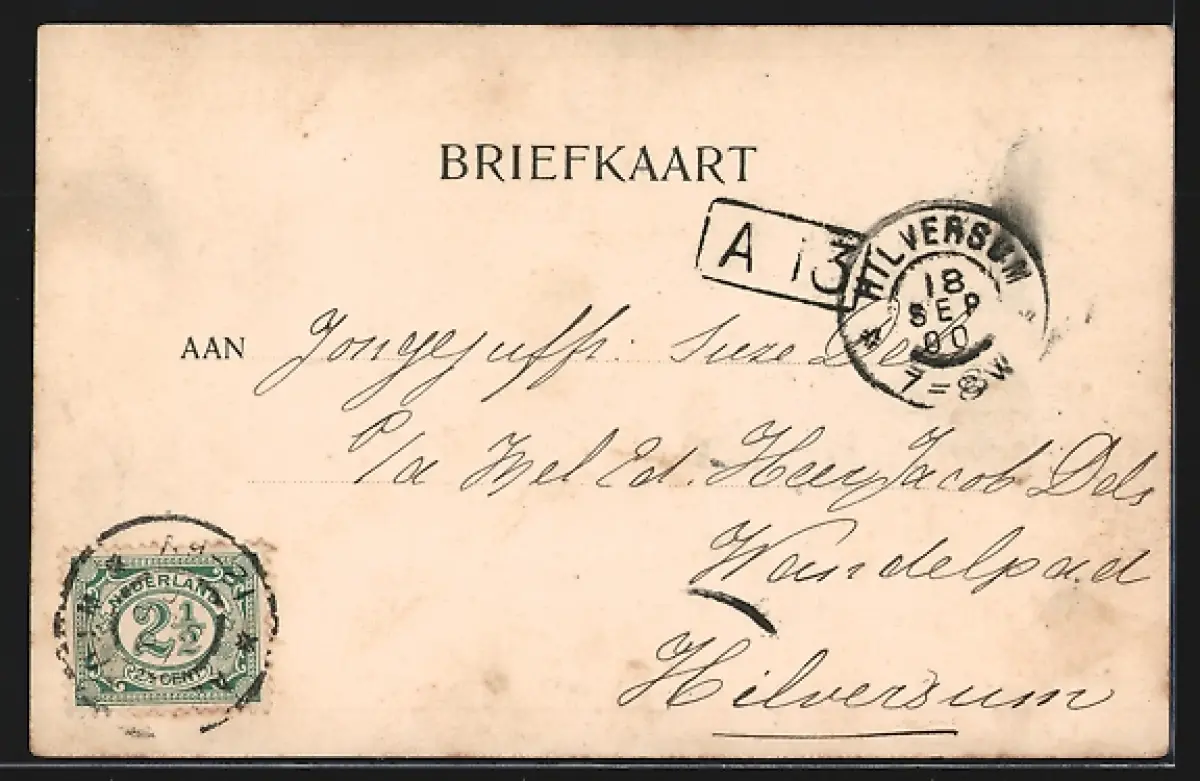 BRIEFKAART
A 13
HILVERSUM
18
SEP
00
7=8 W
AAN Jongejuffr. Suze Dels
P/a Wel Ed. Heer Jacob Dels
Wandelpad
Hilversum
NEDERLAND
2½
2½ CENT